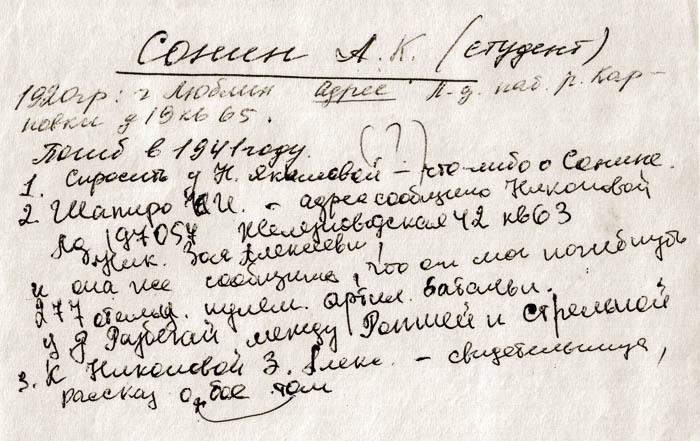 Сонин А.К. (студент)
1920гр: г Люблин Адрес Л-д. наб. р. Кар-
повки д 19 кв 65.
Погиб в 1941 году. (?)
1. Спросить у Н. Якашовой – что-либо о Сонине.
2 Шапиро И. – адрес сообщено Никоновой
Лд 197057 Железноводская 42 кв 63
Ник. Зоя Алексеевн
и она же сообщила, что он мог погибнуть
277 отельд. пулем. артил. батальон.
у д Разбегай между Ропшей и Стрельной
3. К Никоновой З. Алекс. – свидетельница,
рассказ о бое том